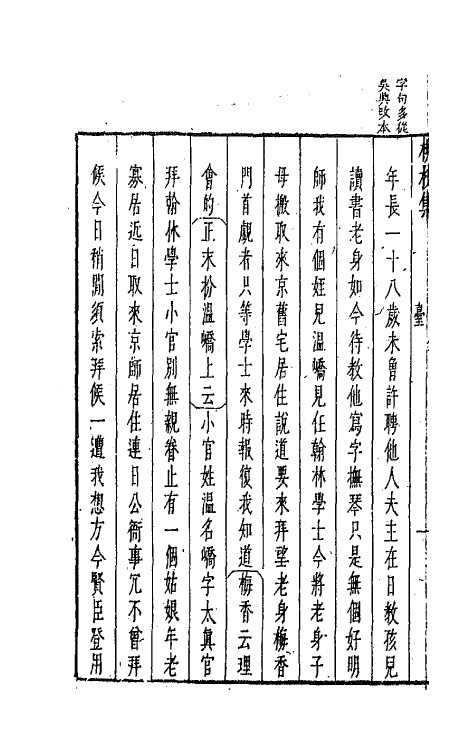 字句多從
吳興改本
柳枝集
臺
一
年長一十八歲未曾許聘他人夫主在日教孩兒
讀書老身如今待教他寫字撫琴只是無個好明
師我有個姪兒溫嶠見任翰林學士今將老身子
母搬取來京舊宅居住說道要來拜望老身梅香
門首覷者只等學士來時報復我知道梅香云理
會的正末扮溫嶠上云小官姓溫名嶠字太真官
拜翰林學士小官別無親眷止有一個姑娘年老
寡居近日取來京師居住連日公衙事冗不曾拜
候今日稍閒須索拜候一遭我想方今賢臣登用